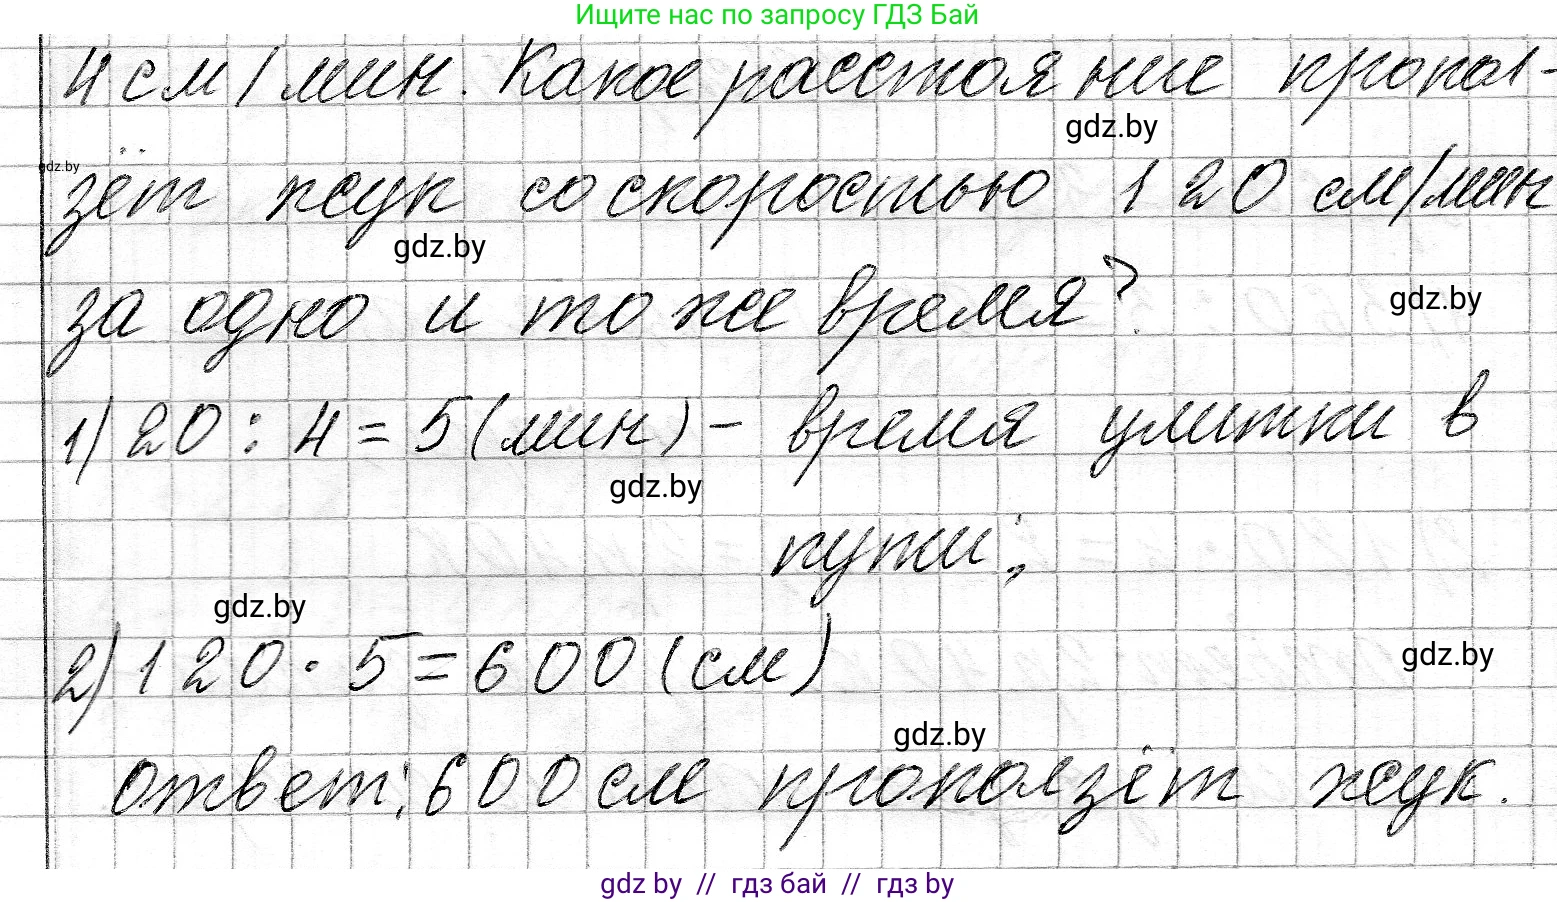 Ищите нас по запросу ГДЗ Бай
4 см/мин. Какое расстояние пропол-
gdz.by
gdz.by
зёт жук со скоростью 120 см/мин
gdz.by
за одно и то же время?
gdz.by
1) 20 : 4 = 5 (мин) - время улитки в
gdz.by
пути;
gdz.by
2) 120 · 5 = 600 (см)
gdz.by
gdz.by
ответ: 600 см проползёт жук.
gdz by // гдз бай // гдз by